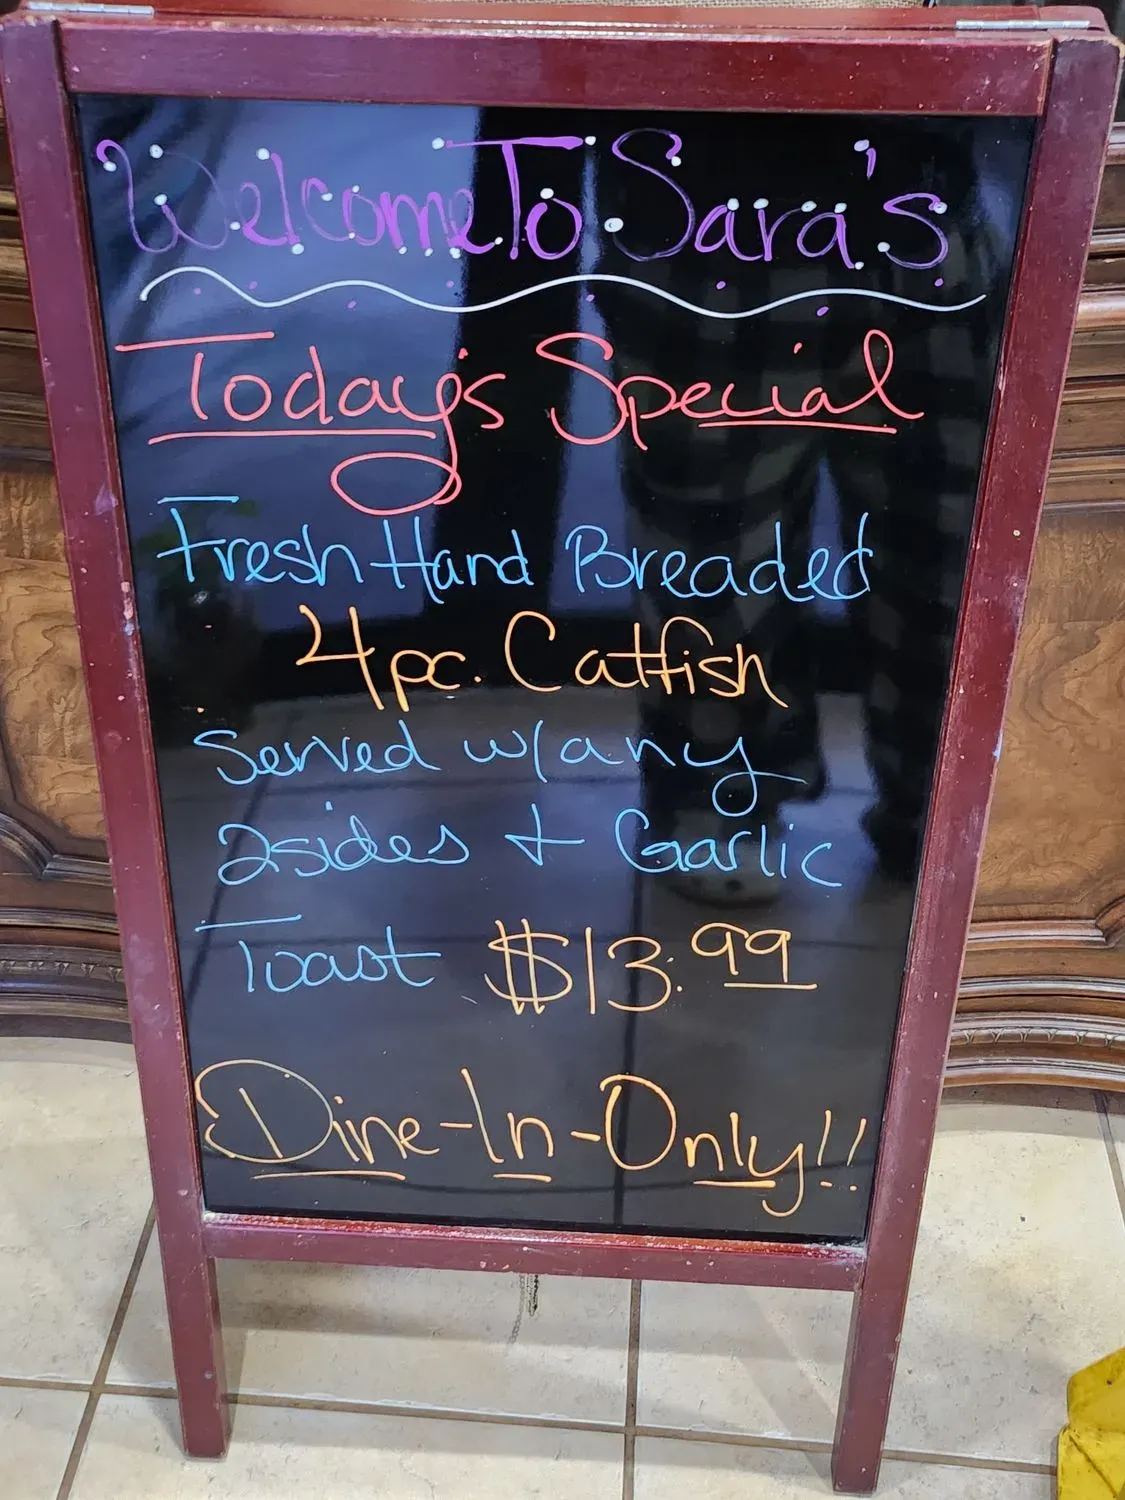 Welcome To Sara's
Today's Special
Fresh Hand Breaded
4pc. Catfish
Served w/any
2sides + Garlic
Toast $13.99
Dine-In-Only!!